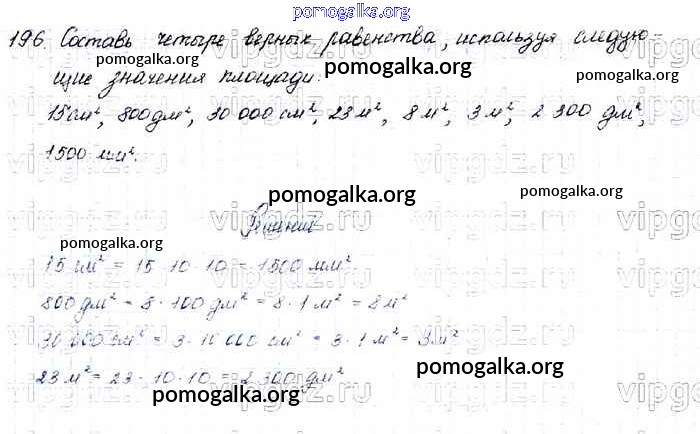 pomogalka.org
196. Составь четыре верных равенства, используя следую-
щие значения площади:
pomogalka.org pomogalka.org
15 см², 800 дм², 30 000 см², 23 м², 8 м², 3 м², 2 300 дм²,
1500 мм².
vipgdz.ru vipgdz.ru vipgdz
pomogalka.org pomogalka.org
vipgdz.ru vipgdz.ru vipgdz
Решение
pomogalka.org
15 см² = 15 · 10 · 10 = 1500 мм²
800 дм² = 8 · 100 дм² = 8 · 1 м² = 8 м²
vipgdz.ru vipgdz.ru vipgdz
30 000 см² = 3 · 10 000 см² = 3 · 1 м² = 3 м²
pomogalka.org
23 м² = 23 · 10 · 10 = 2 300 дм²
pomogalka.org pomogalka.org
vipgdz.ru vipgdz.ru vipgdz